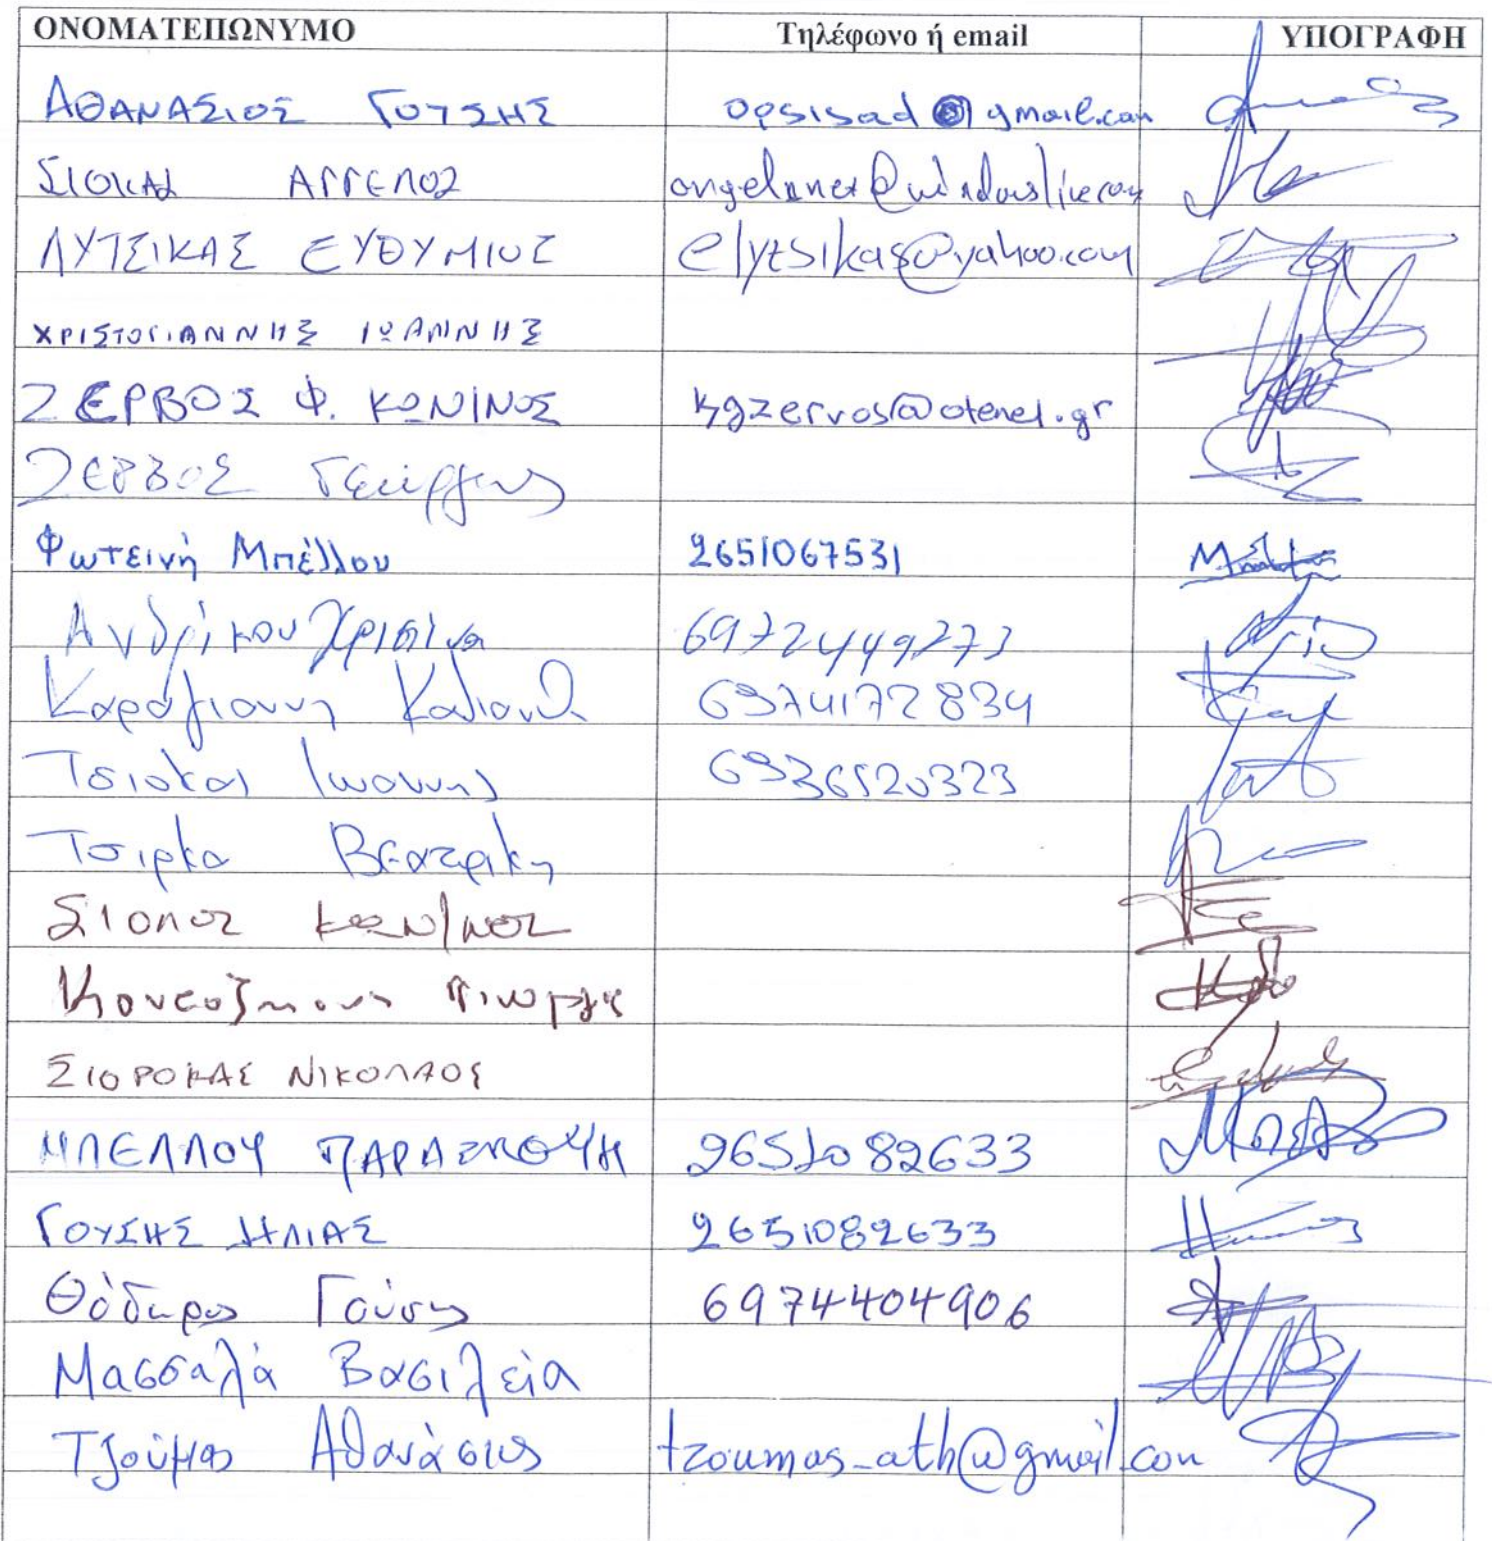 ΟΝΟΜΑΤΕΠΩΝΥΜΟ Τηλέφωνο ή email ΥΠΟΓΡΑΦΗ
ΑΘΑΝΑΣΙΟΣ ΓΟΥΣΗΣ opsisad@gmail.com
ΣΙΟΚΑΣ ΑΓΓΕΛΟΣ
ΛΥΤΣΙΚΑΣ ΕΥΘΥΜΙΟΣ elytsikas@yahoo.com
ΧΡΙΣΤΟΓΙΑΝΝΗΣ ΙΩΑΝΝΗΣ
ΖΕΡΒΟΣ Φ. ΚΩΝ/ΝΟΣ kgzervos@otenet.gr
ΖΕΡΒΟΣ Γεώργιος
Φωτεινή Μπέλλου 2651067531
Ανδρίκου Χριστίνα 6972449273
Καραγιάννη 6974172834
Τσιόκας Ιωάννης 6936520323
Τσίρκα Βεατρίκη
ΣΙΟΠΟΣ ΚΩΝ/ΝΟΣ
ΣΙΟΡΟΚΑΣ ΝΙΚΟΛΑΟΣ
ΜΠΕΛΛΟΥ ΠΑΡΑΣΚΕΥΗ 2651082633
ΓΟΥΣΗΣ ΗΛΙΑΣ 2651082633
Θόδωρος Γούσης 6974404906
Μασσαλά Βασιλεία
Τζούμας Αθανάσιος tzoumas_ath@gmail.com